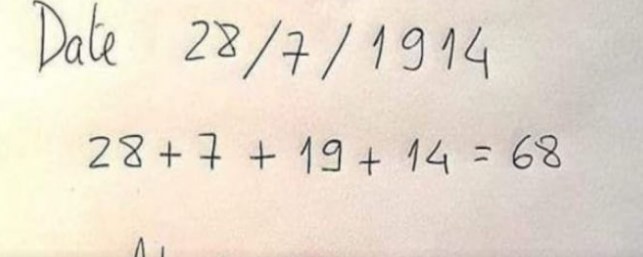 Date 28/7/1914
28 + 7 + 19 + 14 = 68